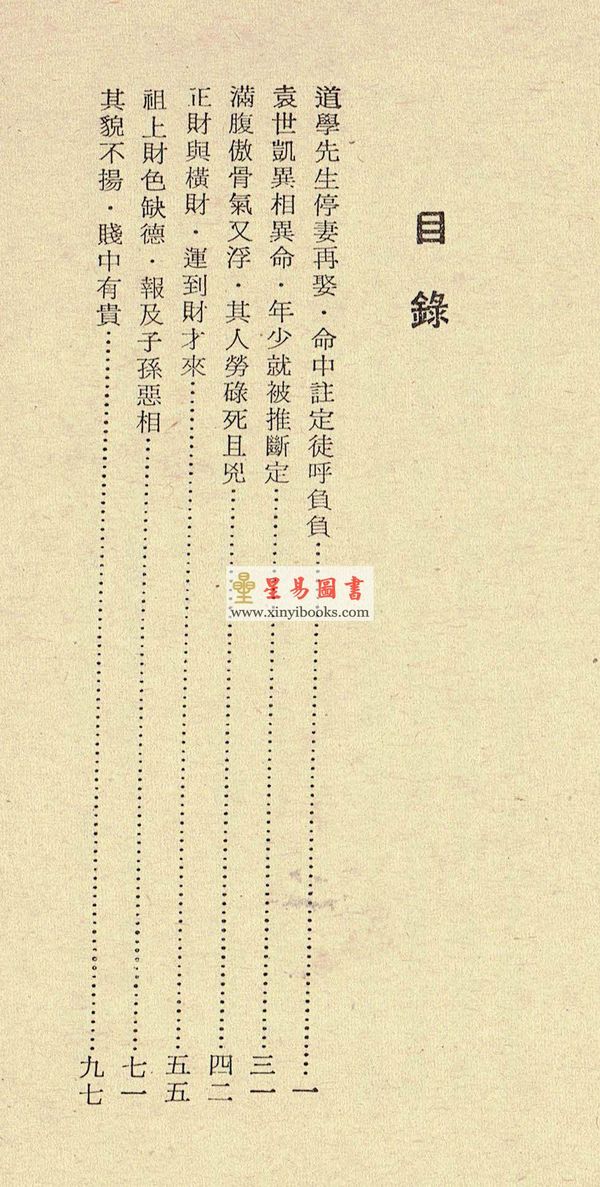 目錄
道學先生停妻再娶·命中註定徒呼負負……一
袁世凱異相異命·年少就被推斷定……三一
滿腹傲骨氣又浮·其人勞碌死且兇……四二
正財與橫財·運到財才來……五五
祖上財色缺德·報及子孫惡相……七一
其貌不揚·賤中有貴……九七
星易圖書
www.xinyibooks.com